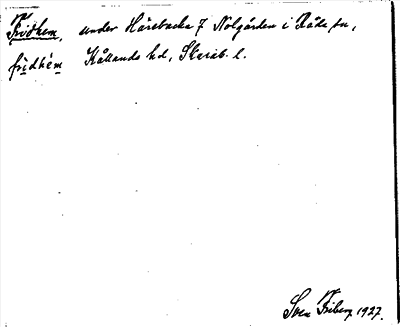 Fridhem, under Härebacka 7 Nolgården i Råda sn,
fridhem Kållands hd, Skarab. l.
Sven Friberg 1927.